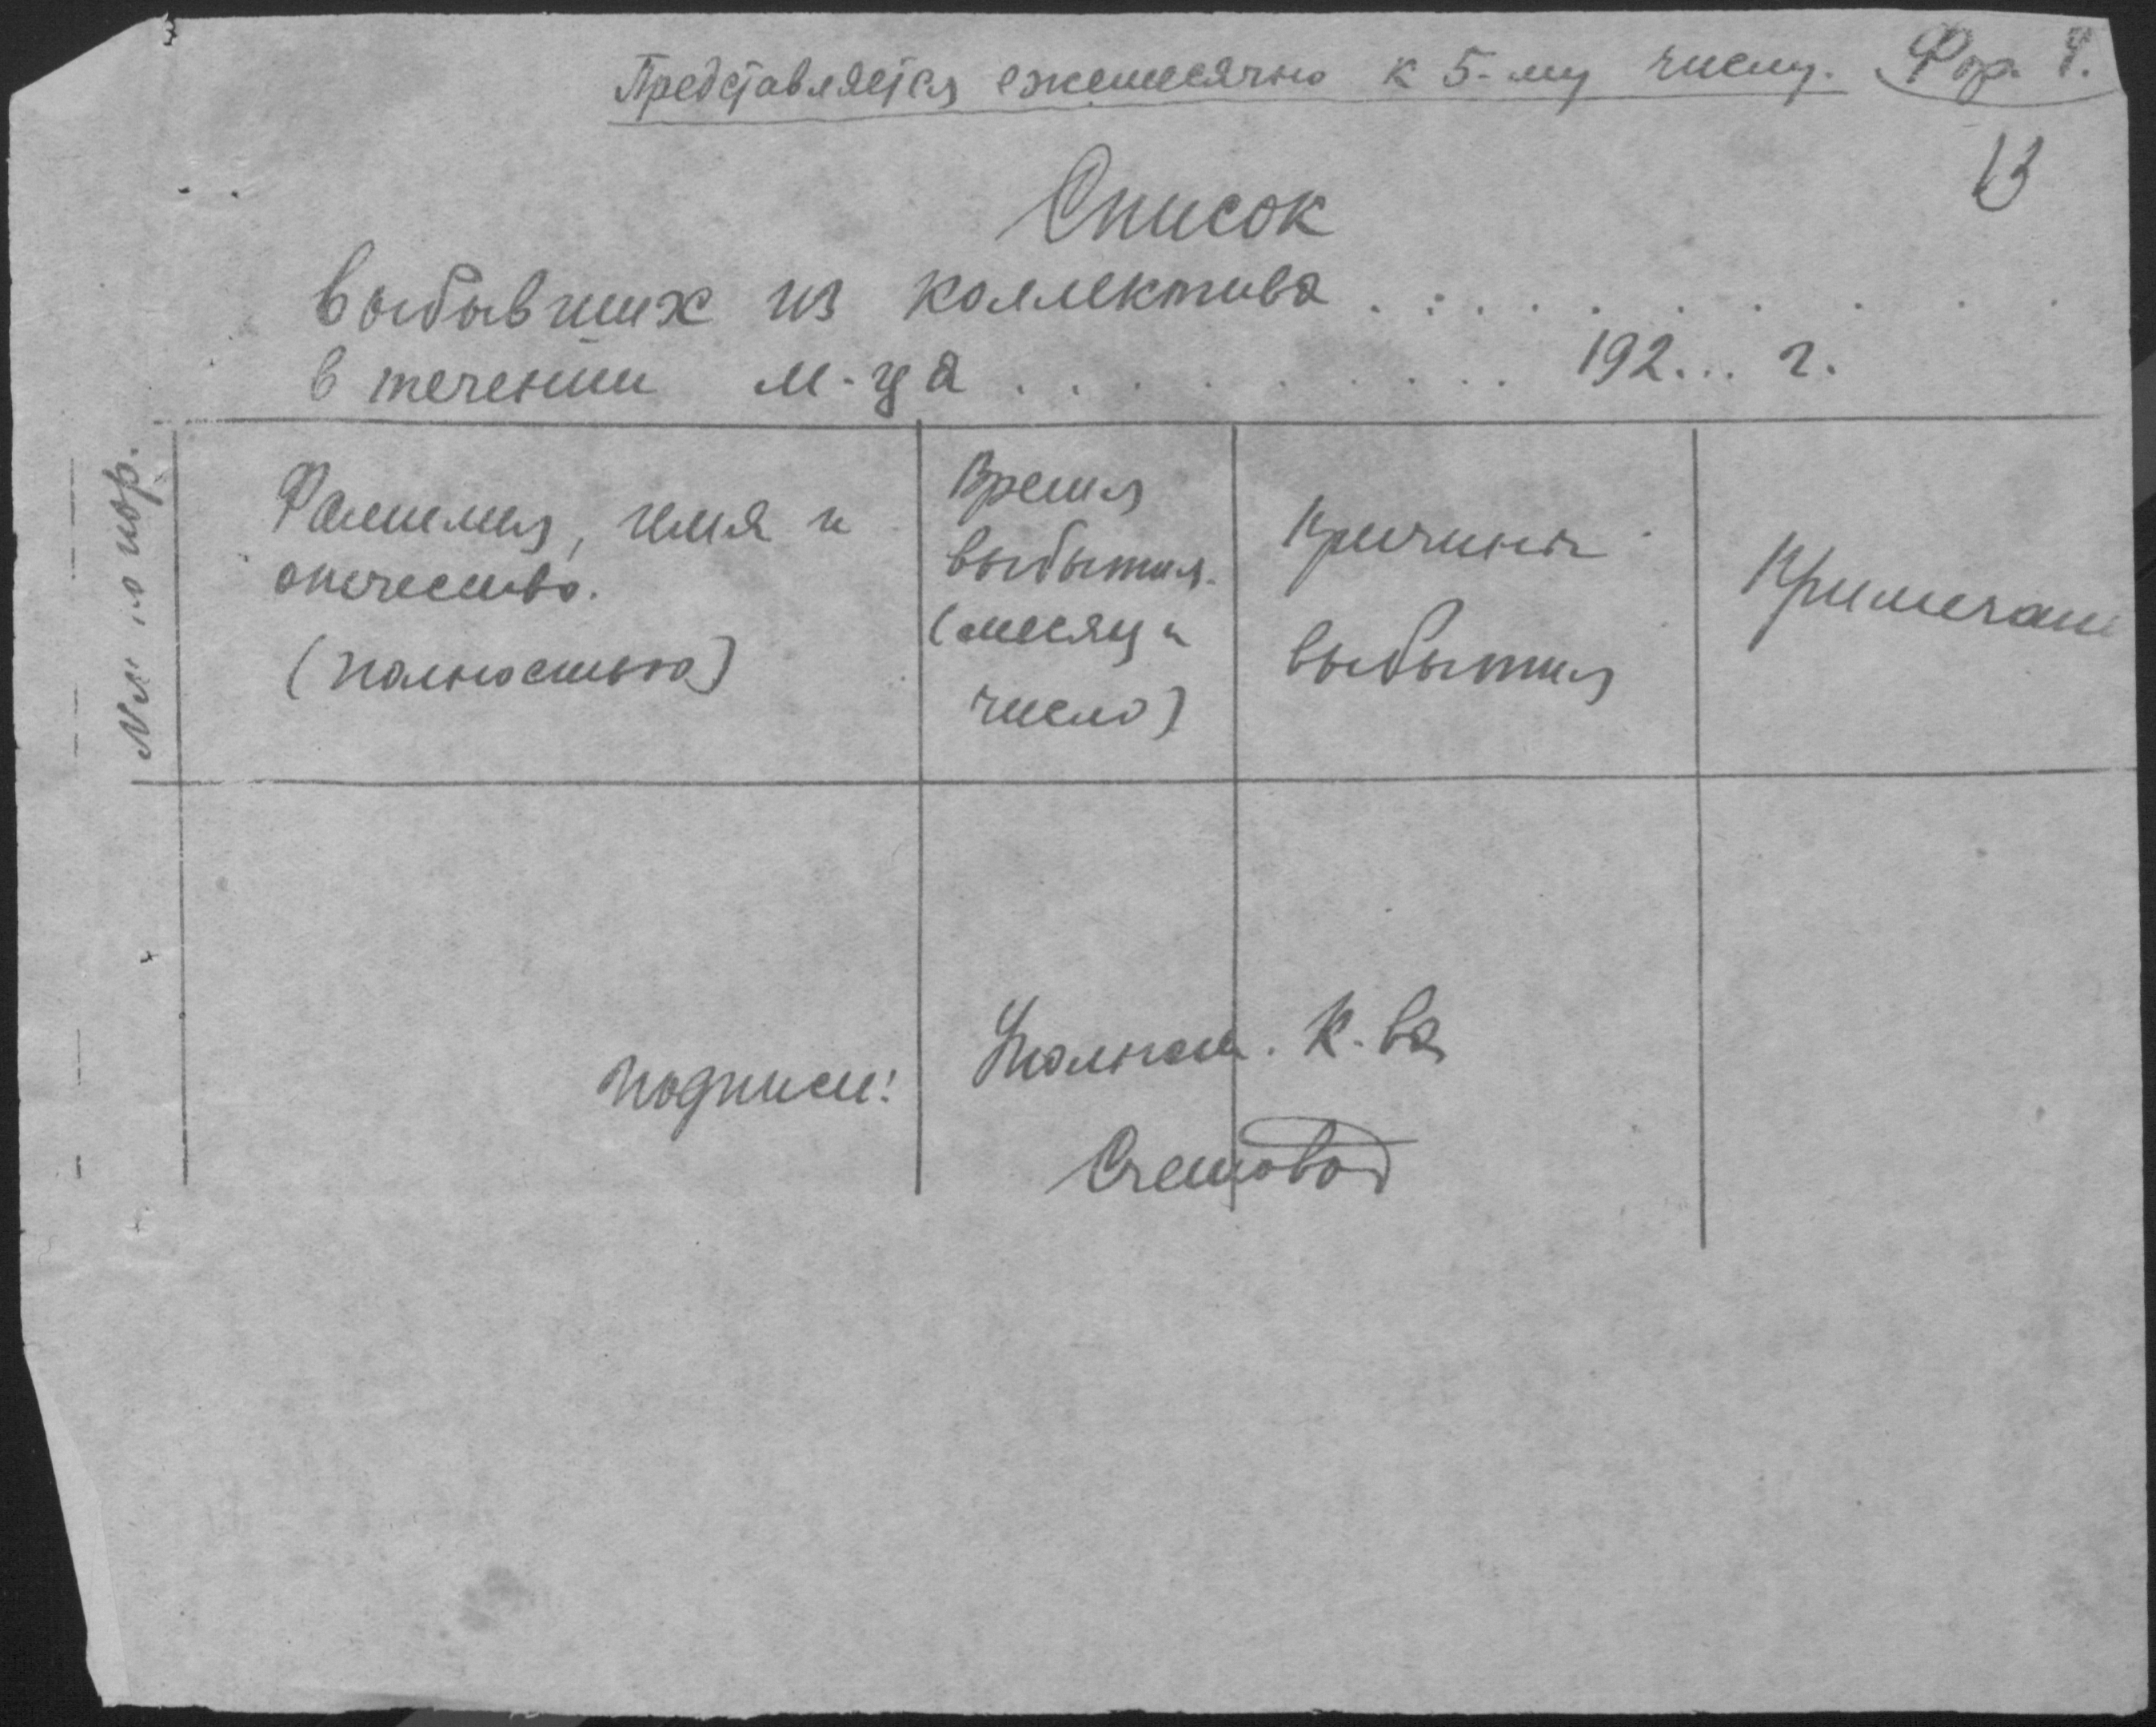 Представляется ежемесячно к 5-му числу. Фор.
13
Список
выбывших из коллектива . . . . . . . . . .
в течении м-ца . . . . . . . . . 192... г.
№№ по пор.
Фамилия, имя и
отчество.
(полностью)
Время
выбытия.
(месяц и
число)
Причины
выбытия
Примечани
подписи:
Уполном. К-ва
Счетовод